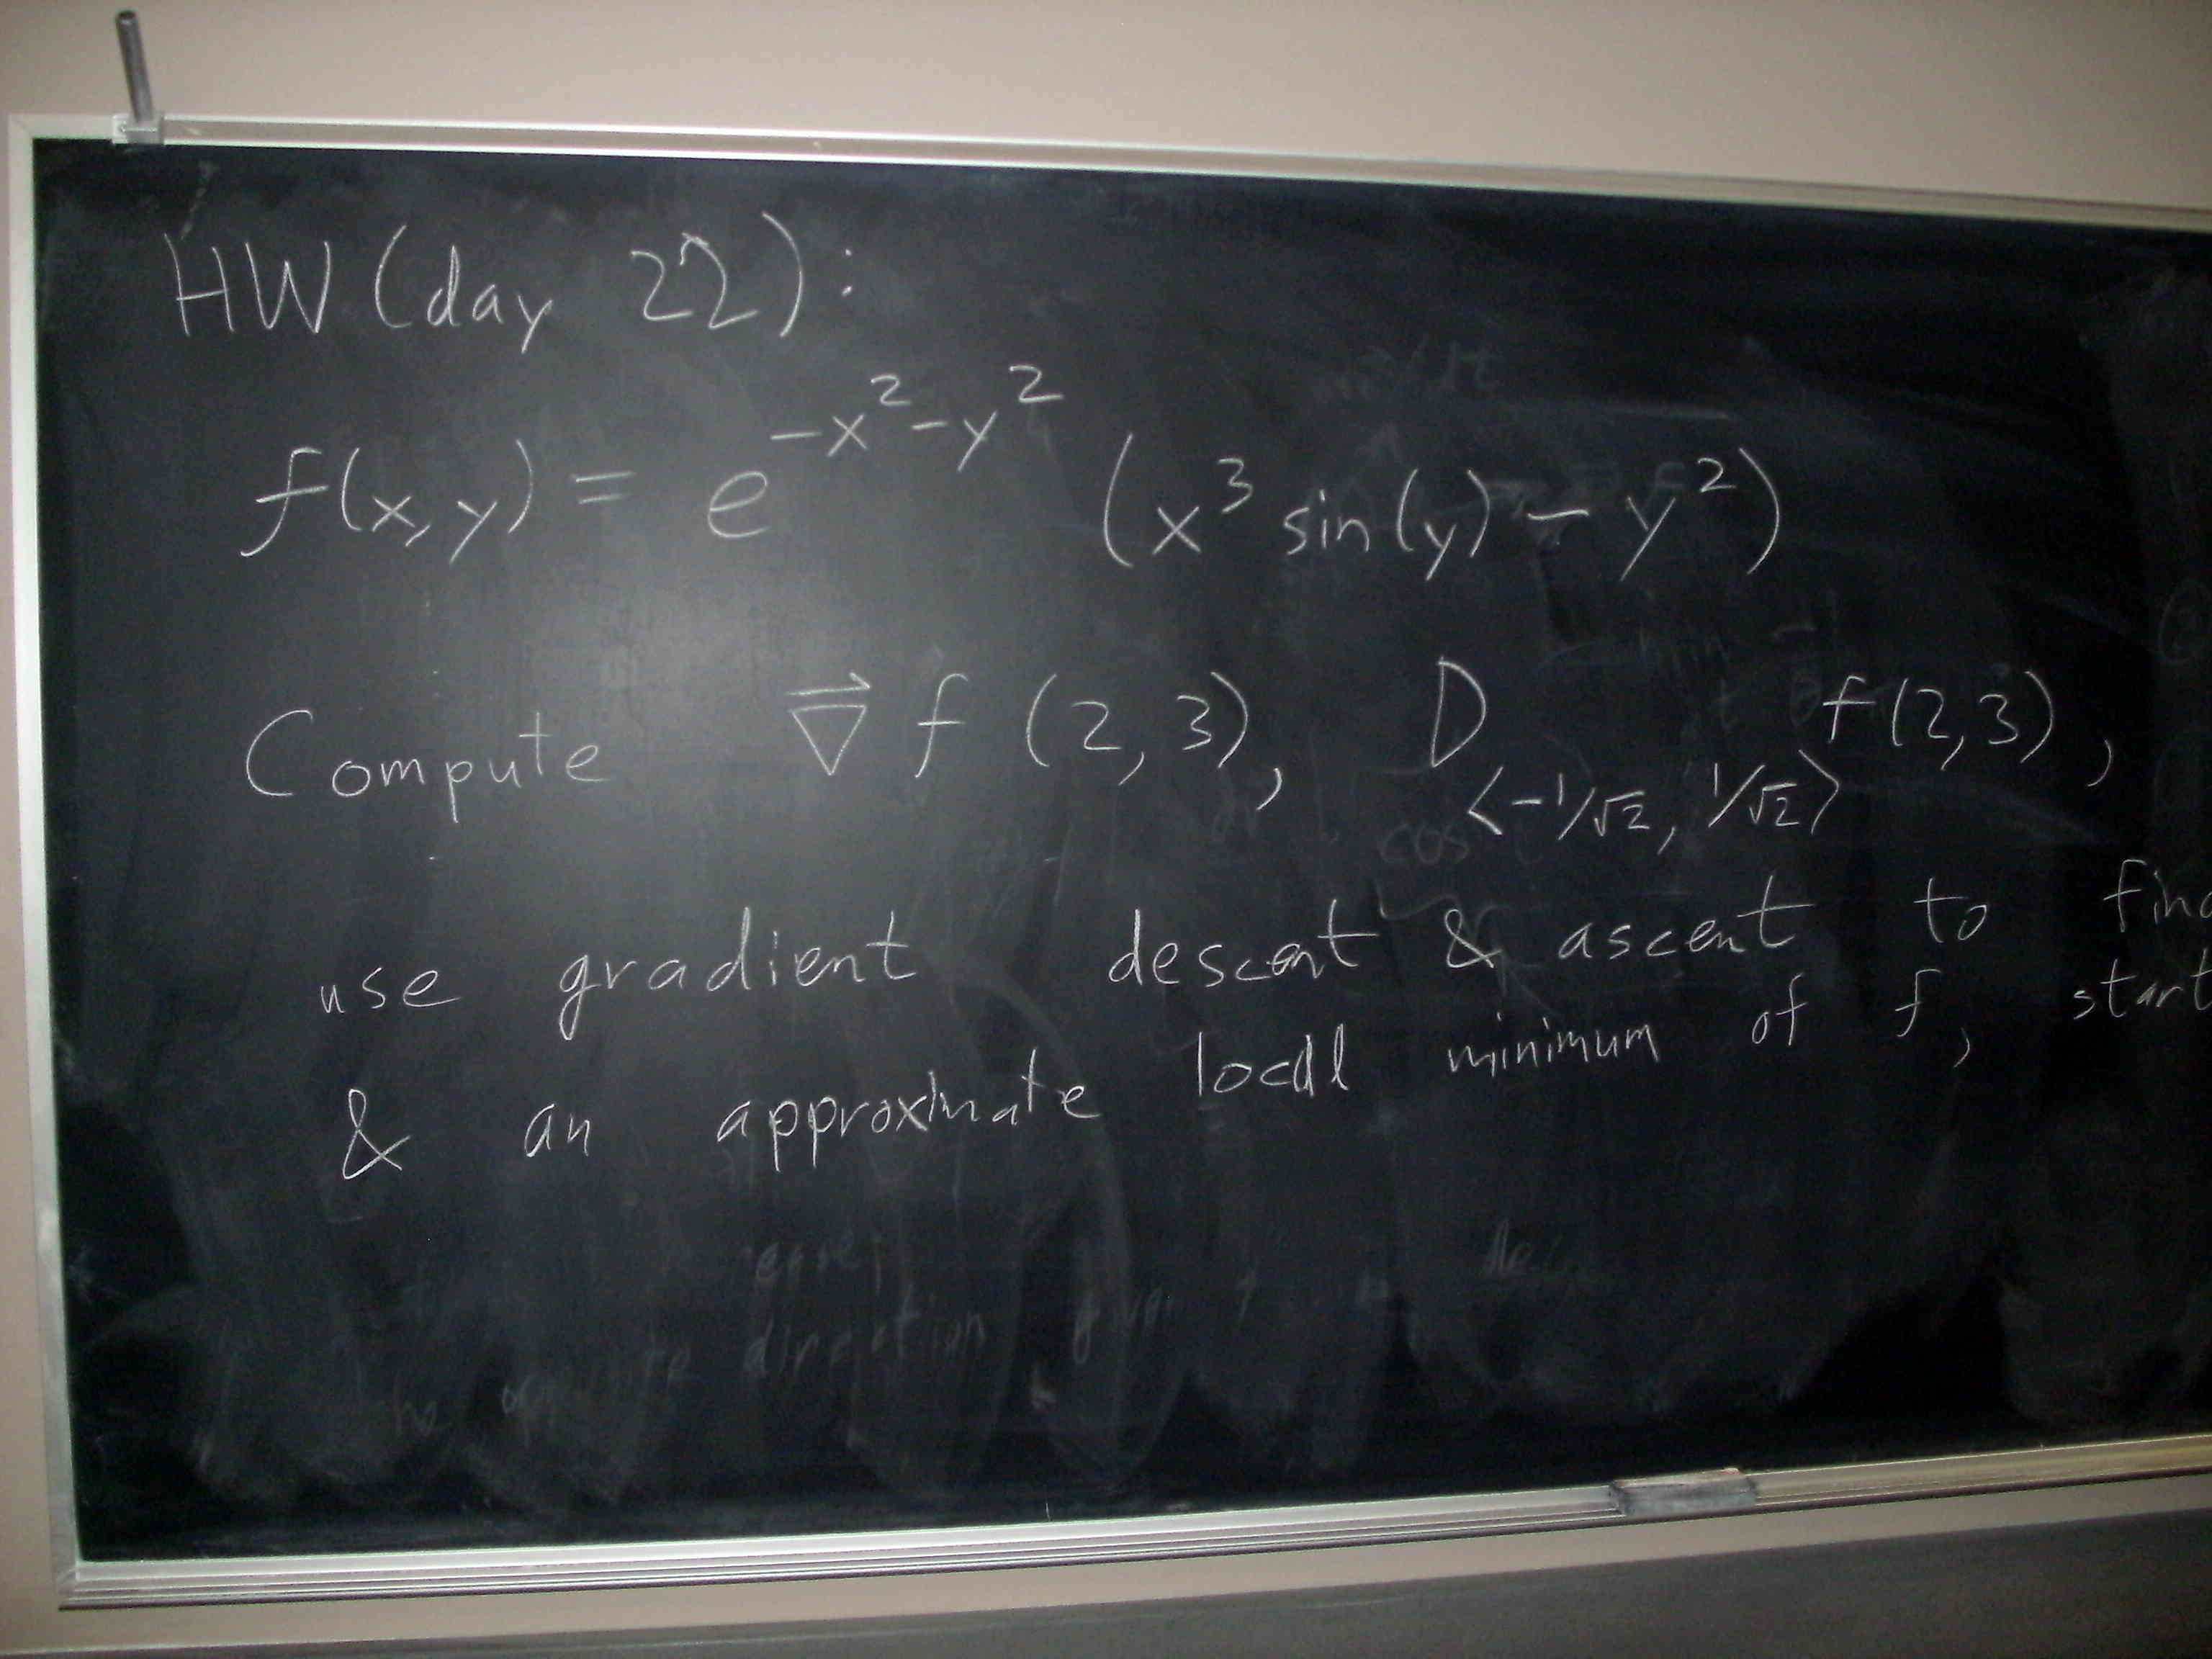 HW (day 22):
f(x,y) = e^{-x^2-y^2} (x^3 sin(y) - y^2)
Compute ∇⃗ f (2,3), D_{<-1/√2, 1/√2>} f(2,3),
use gradient descent & ascent to
& an approximate local minimum of f, start